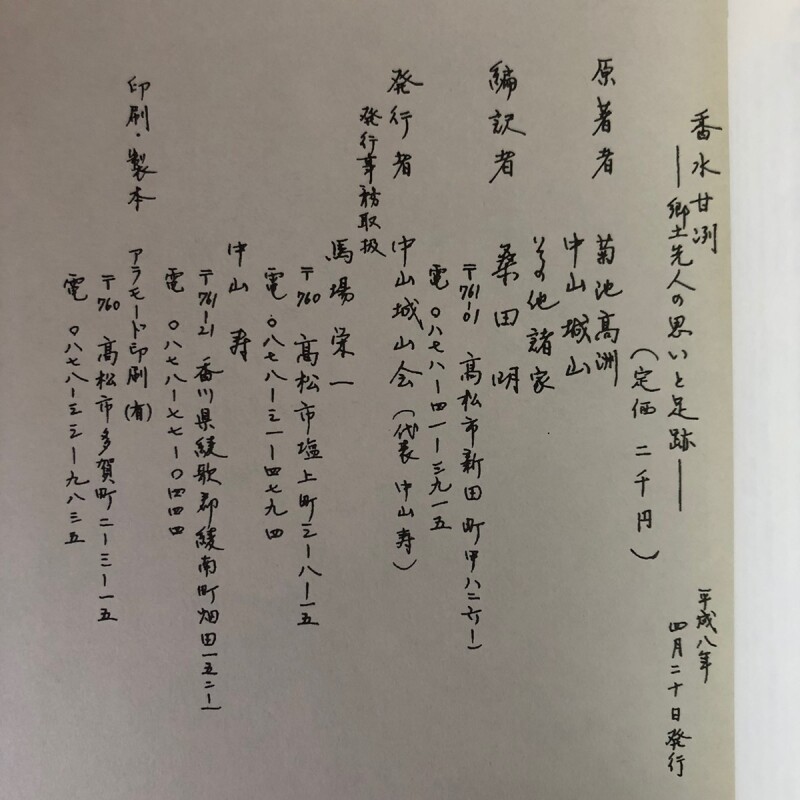 香水甘冽
―郷土先人の思いと足跡―
(定価 二千円)
平成八年
四月二十日発行
原著者 菊池高洲
中山城山
その他諸家
編訳者 桑田明
〒761-01 高松市新田町甲八二六-一
電 〇八七八-四一-三九一五
発行者 中山城山会(代表 中山寿)
発行事務取扱
馬場栄一
〒760 高松市塩上町三-八-一五
電 〇八七八-三一-四七九四
中山寿
〒761-21 香川県綾歌郡綾南町畑田一五二一
電 〇八七八-七七-〇四四四
印刷・製本 アラモード印刷(有)
〒760 高松市多賀町二-三-一五
電 〇八七八-三三-九八三五